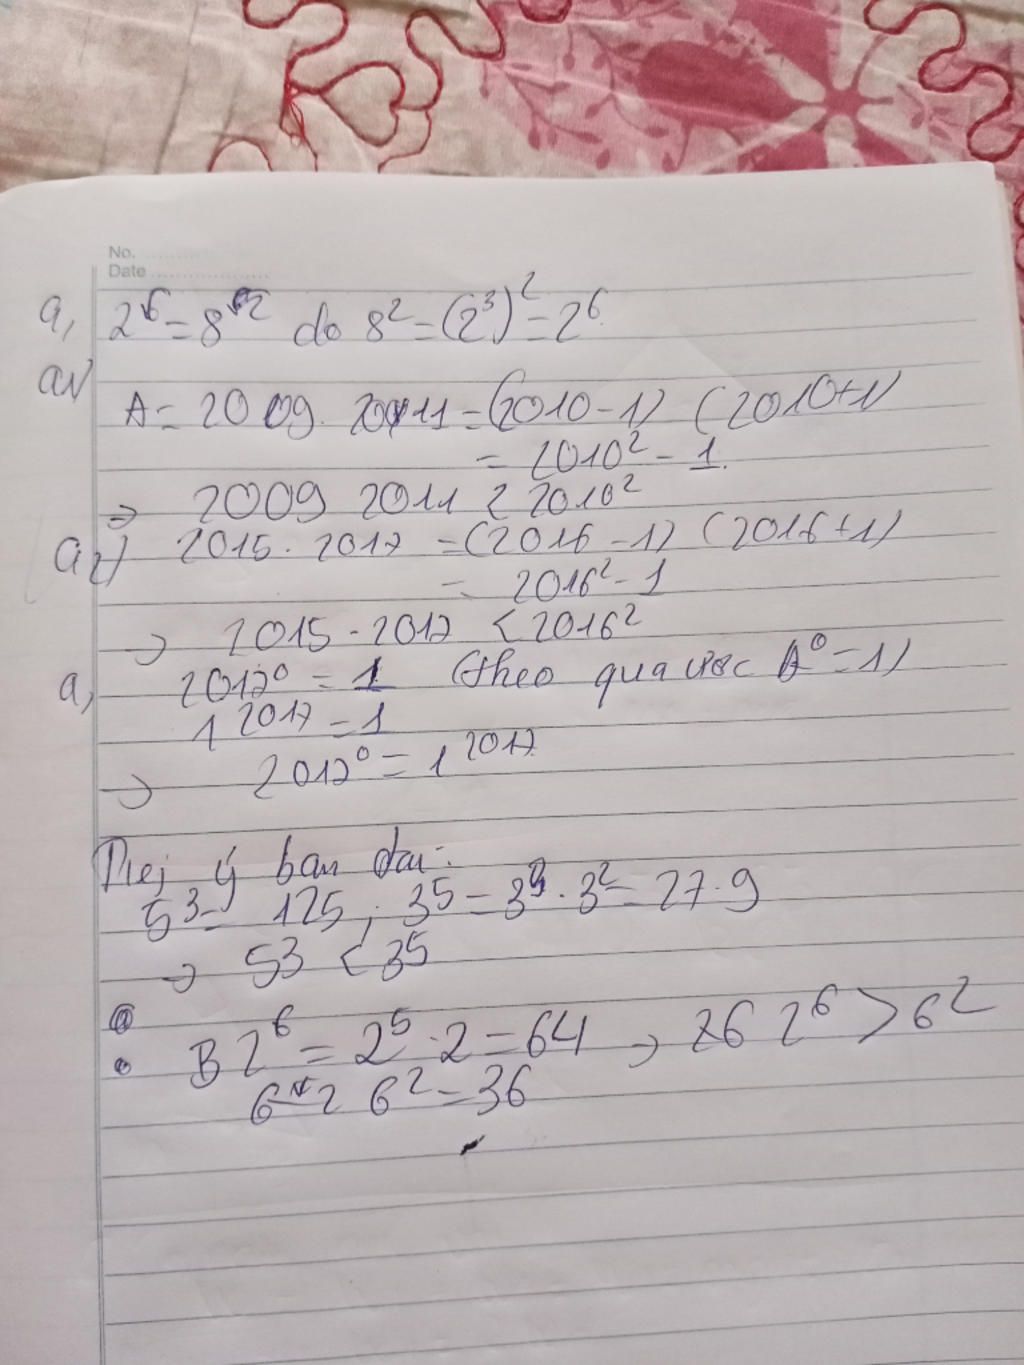 No.
Date
a, 2^6 = 8^2 do 8^2 = (2^3)^2 = 2^6
a1)
A = 2009. 2011 = (2010-1) (2010+1)
= 2010^2 - 1.
=> 2009 2011 < 2010^2
a2) 2015. 2017 = (2016-1) (2016+1)
= 2016^2 - 1
-> 2015.2017 < 2016^2
a, 2017^0 = 1 (theo quy ước A^0 = 1)
1^2017 = 1
-> 2017^0 = 1^2017
ý ban đầu:
5^3 = 125; 3^5 = 3^3.3^2 = 27.9
-> 53 < 35
B 2^6 = 2^5.2 = 64 -> 2^6 > 6^2
6^2 = 36